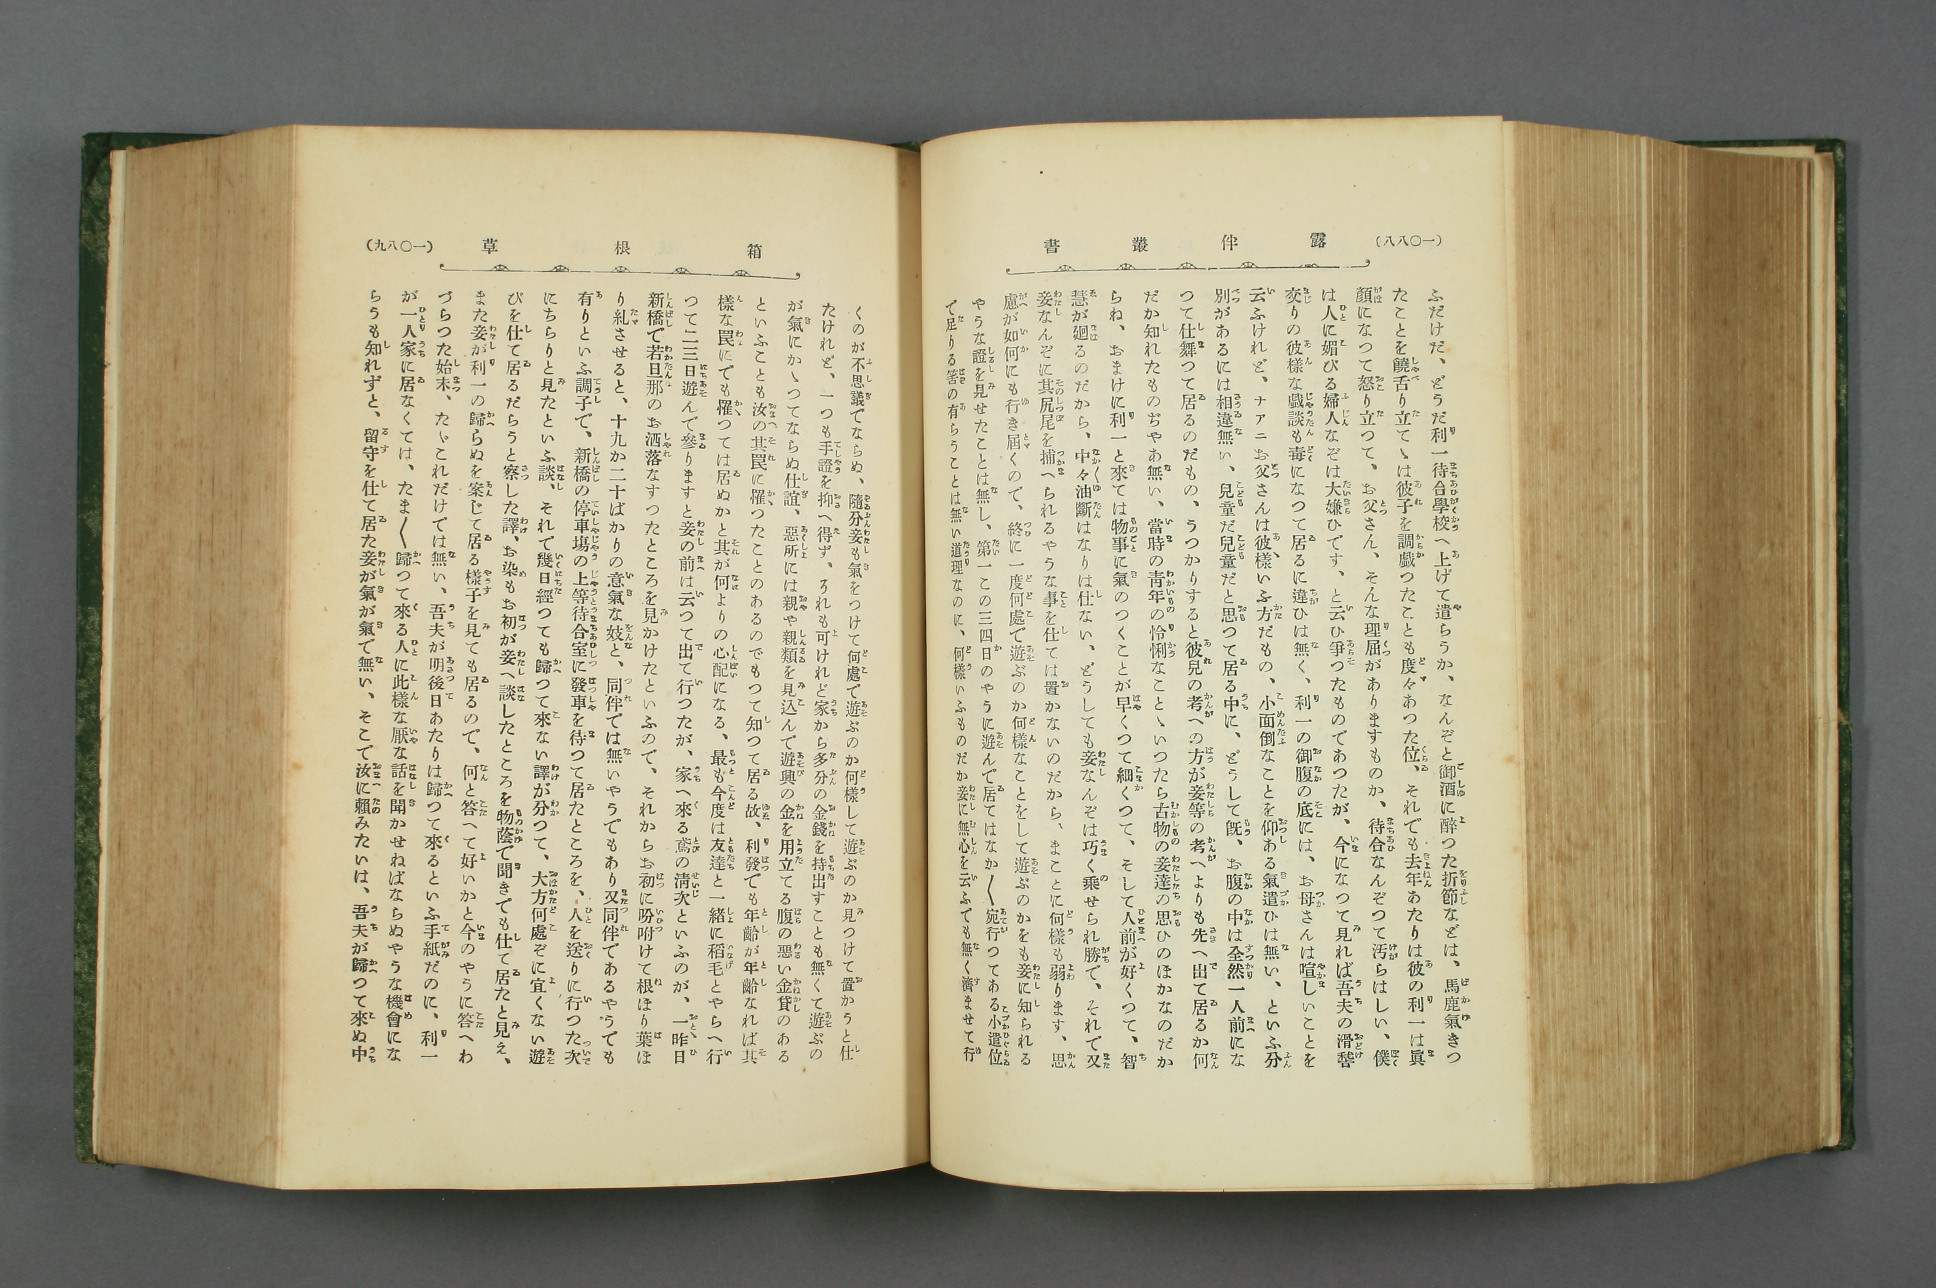 (一〇八八)
露伴叢書
ふだけだ、どうだ利一待合學校へ上げて遣らうか、なんぞと御酒に醉つた折節などは、馬鹿氣きつ
たことを饒舌り立てゝは彼子を調戯つたことも度々あつた位、それでも去年あたりは彼の利一は眞
顏になつて怒り立つて、お父さん、そんな理屈がありますものか、待合なんぞつて汚らはしい、僕
は人に媚びる婦人なぞは大嫌ひです、と云ひ爭つたものであつたが、今になつて見れば吾夫の滑稽
交りの彼樣な戯談も毒になつて居るに違ひは無く、利一の御腹の底には、お母さんは喧しいことを
云ふけれど、ナアニお父さんは彼樣いふ方だもの、小面倒なことを仰ある氣遣ひは無い、といふ分
別があるには相違無い、兒童だ兒童だと思つて居る中に、どうして既、お腹の中は全然一人前にな
つて仕舞つて居るのだもの、うつかりすると彼兒の考への方が妾等の考へよりも先へ出て居るか何
だか知れたものぢやあ無い、當時の靑年の怜悧なことゝいつたら古物の妾達の思ひのほかなのだか
らね、おまけに利一と來ては物事に氣のつくことが早くつて細くつて、そして人前が好くつて、智
慧が廻るのだから、中々油斷はなりは仕ない、どうしても妾なんぞは巧く乘せられ勝で、それで又
妾なんぞに其尻尾を捕へられるやうな事を仕ては置かないのだから、まことに何樣も弱ります、思
慮が如何にも行き屆くので、終に一度何處で遊ぶのか何樣なことをして遊ぶのかをも妾に知られる
やうな證を見せたことは無し、第一この三四日のやうに遊んで居てはなか〱宛行つてある小遣位
で足りる筈の有らうことは無い道理なのに、何樣いふものだか妾に無心を云ふでも無く濟ませて行
箱根草
(一〇八九)
くのが不思議でならぬ、隨分妾も氣をつけて何處で遊ぶのか何樣して遊ぶのか見つけて置かうと仕
たけれど、一つも手證を抑へ得ず、それも可けれど家から多分の金錢を持出すことも無くて遊ぶの
が氣にかゝつてならぬ仕誼、惡所には親や親類を見込んで遊興の金を用立てる腹の惡い金貸のある
といふことも汝の其罠に罹つたことのあるのでもつて知つて居る故、利發でも年齡が年齡なれば其
樣な罠にでも罹つては居ぬかと其が何よりの心配になる、最も今度は友達と一緒に稻毛とやらへ行
つて二三日遊んで參りますと妾の前は云つて出て行つたが、家へ來る鳶の淸次といふのが、一昨日
新橋で若旦那のお洒落なすつたところを見かけたといふので、それからお初に吩咐けて根ほり葉ほ
り糺させると、十九か二十ばかりの意氣な妓と、同伴では無いやうでもあり又同伴であるやうでも
有りといふ調子で、新橋の停車場の上等待合室に發車を待つて居たところを、人を送りに行つた次
にちらりと見たといふ談、それで幾日經つても歸つて來ない譯が分つて、大方何處ぞに宜くない遊
びを仕て居るだらうと察した譯、お染もお初が妾へ談したところを物蔭で聞きでも仕て居たと見え、
また妾が利一の歸らぬを案じて居る樣子を見ても居るので、何と答へて好いかと今のやうに答へわ
づらつた始末、たゞこれだけでは無い、吾夫が明後日あたりは歸つて來るといふ手紙だのに、利一
が一人家に居なくては、たま〱歸つて來る人に此樣な厭な話を聞かせねばならぬやうな機會にな
らうも知れずと、留守を仕て居た妾が氣が氣で無い、そこで汝に賴みたいは、吾夫が歸つて來ぬ中